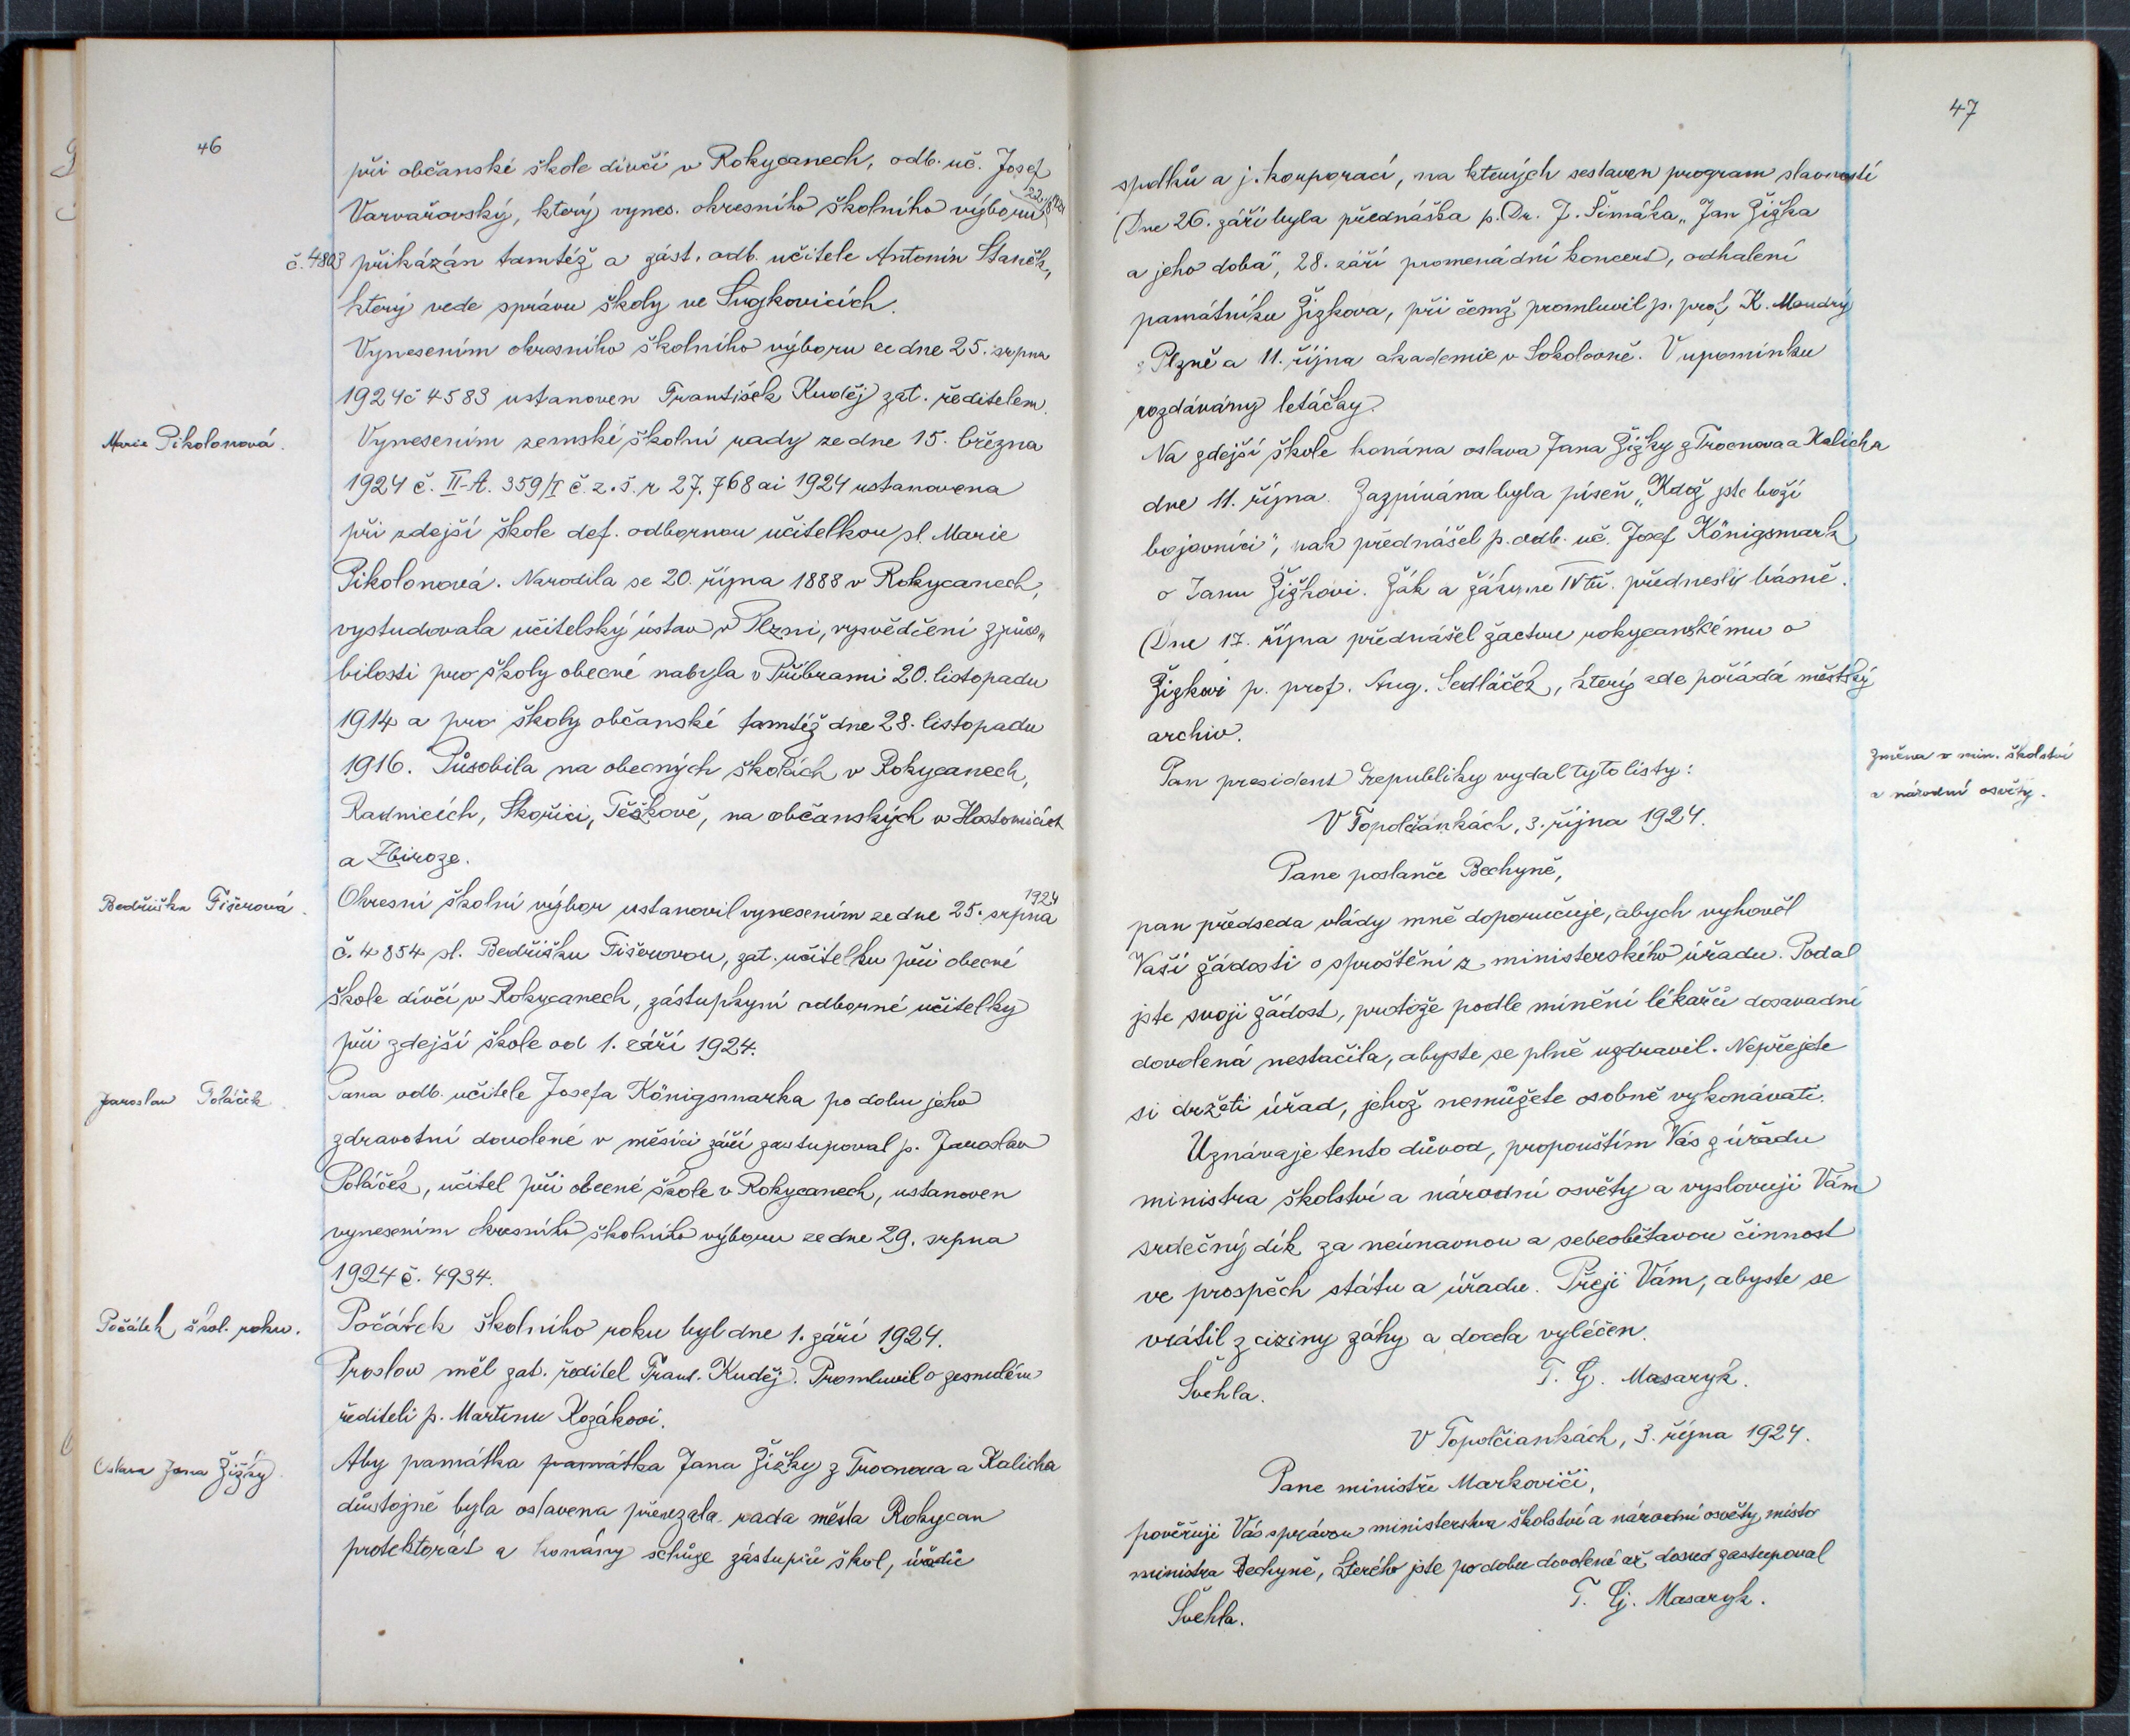 46
při občanské škole dívčí v Rokycanech, odb. uč. Josef
Varvařovský, který vynes. okresního školního výboru
č. 4803 přikázán tamtéž a zást. odb. učitele Antonín Staněk,
který vede správu školy ve Lugkovicích.
Vynesením okresního školního výboru ze dne 25. srpna
1924 č 4583 ustanoven František Kuděj zat. ředitelem.
Marie Pikolonová.
Vynesením zemské školní rady ze dne 15. března
1924 č. II-A. 359/I č. z. š. r 27.768 ai 1924 ustanovena
při zdejší škole def. odbornou učitelkou sl. Marie
Pikolonová. Narodila se 20. října 1888 v Rokycanech,
vystudovala učitelský ústav v Plzni, vysvědčení způso„
bilosti pro školy obecné nabyla v Příbrami 20. listopadu
1914 a pro školy občanské tamtéž dne 28. listopadu
1916. Působila na obecných školách v Rokycanech,
Radnicích, Skořici, Těškově, na občanských v Hostomicích
a Zbiroze.
Bedřiška Fišerová.
Okresní školní výbor ustanovil vynesením ze dne 25. srpna 1924
č. 4854 sl. Bedřišku Fišerovou, zat. učitelku při obecné
škole dívčí v Rokycanech, zástupkyní odborné učitelky
při zdejší škole od 1. září 1924.
Jaroslav Poláček
Pana odb. učitele Josefa Königsmarka po dobu jeho
zdravotní dovolené v měsíci září zastupoval p. Jaroslav
Poláček, učitel při obecné škole v Rokycanech, ustanoven
vynesením okresního školního výboru ze dne 29. srpna
1924 č. 4934.
Počátek škol. roku.
Počátek školního roku byl dne 1. září 1924.
Proslov měl zat. ředitel Frant. Kuděj. Promluvil o zesnulém
řediteli p. Martinu Kozákovi.
Oslava Jana Žižky.
Aby památka památka Jana Žižky z Trocnova a Kalicha
důstojně byla oslavena převzala rada města Rokycan
protektorát a konány schůze zástupců škol, úřadů
47
spolků a j. korporací, na kterých sestaven program slavností
Dne 26. září byla přednáška p. Dr. J. Šimáka „Jan Žižka
a jeho doba", 28. září promenádní koncert, odhalení
památníku Žižkova, při čemž promluvil p. prof. K. Moudrý
z Plzně a 11. října akademie v Sokolovně. V upomínku
rozdávány letáčky.
Na zdejší škole konána oslava Jana Žižky z Trocnova a Kalicha
dne 11. října. Zazpívána byla píseň „Kdož jste boží
bojovníci", pak přednášel p. odb. uč. Josef Königsmark
o Janu Žižkovi. Žák a žákyně IV tř. přednesli básně.
Dne 17. října přednášel žactvu rokycanskému o
Žižkovi p. prof. Aug. Sedláček, který zde pořádá městský
archiv.
Změna v min. školství
a národní osvěty.
Pan president republiky vydal tyto listy:
V Topolčiankách, 3. října 1924.
Pane poslanče Bechyně,
pan předseda vlády mně doporučuje, abych vyhověl
Vaší žádosti o sproštění z ministerského úřadu. Podal
jste svoji žádost, protože podle mínění lékařů dosavadní
dovolená nestačila, abyste se plně uzdravil. Nepřejete
si držeti úřad, jehož nemůžete osobně vykonávati.
Uznávaje tento důvod, propouštím Vás z úřadu
ministra školství a národní osvěty a vyslovuji Vám
srdečný dík za neúnavnou a sebeobětavou činnost
ve prospěch státu a úřadu. Přeji Vám, abyste se
vrátil z ciziny záhy a docela vyléčen.
T. G. Masaryk.
Švehla.
V Topolčiankách, 3. října 1924.
Pane ministře Markoviči,
pověřuji Vás správou ministerstva školství a národní osvěty, místo
ministra Bechyně, kterého jste po dobu dovolené až dosud zastupoval
T. G. Masaryk.
Švehla.